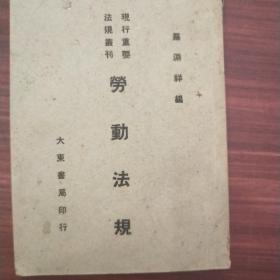 羅淵祥編
現行重要
法規叢刊
勞動法規
大東書局印行